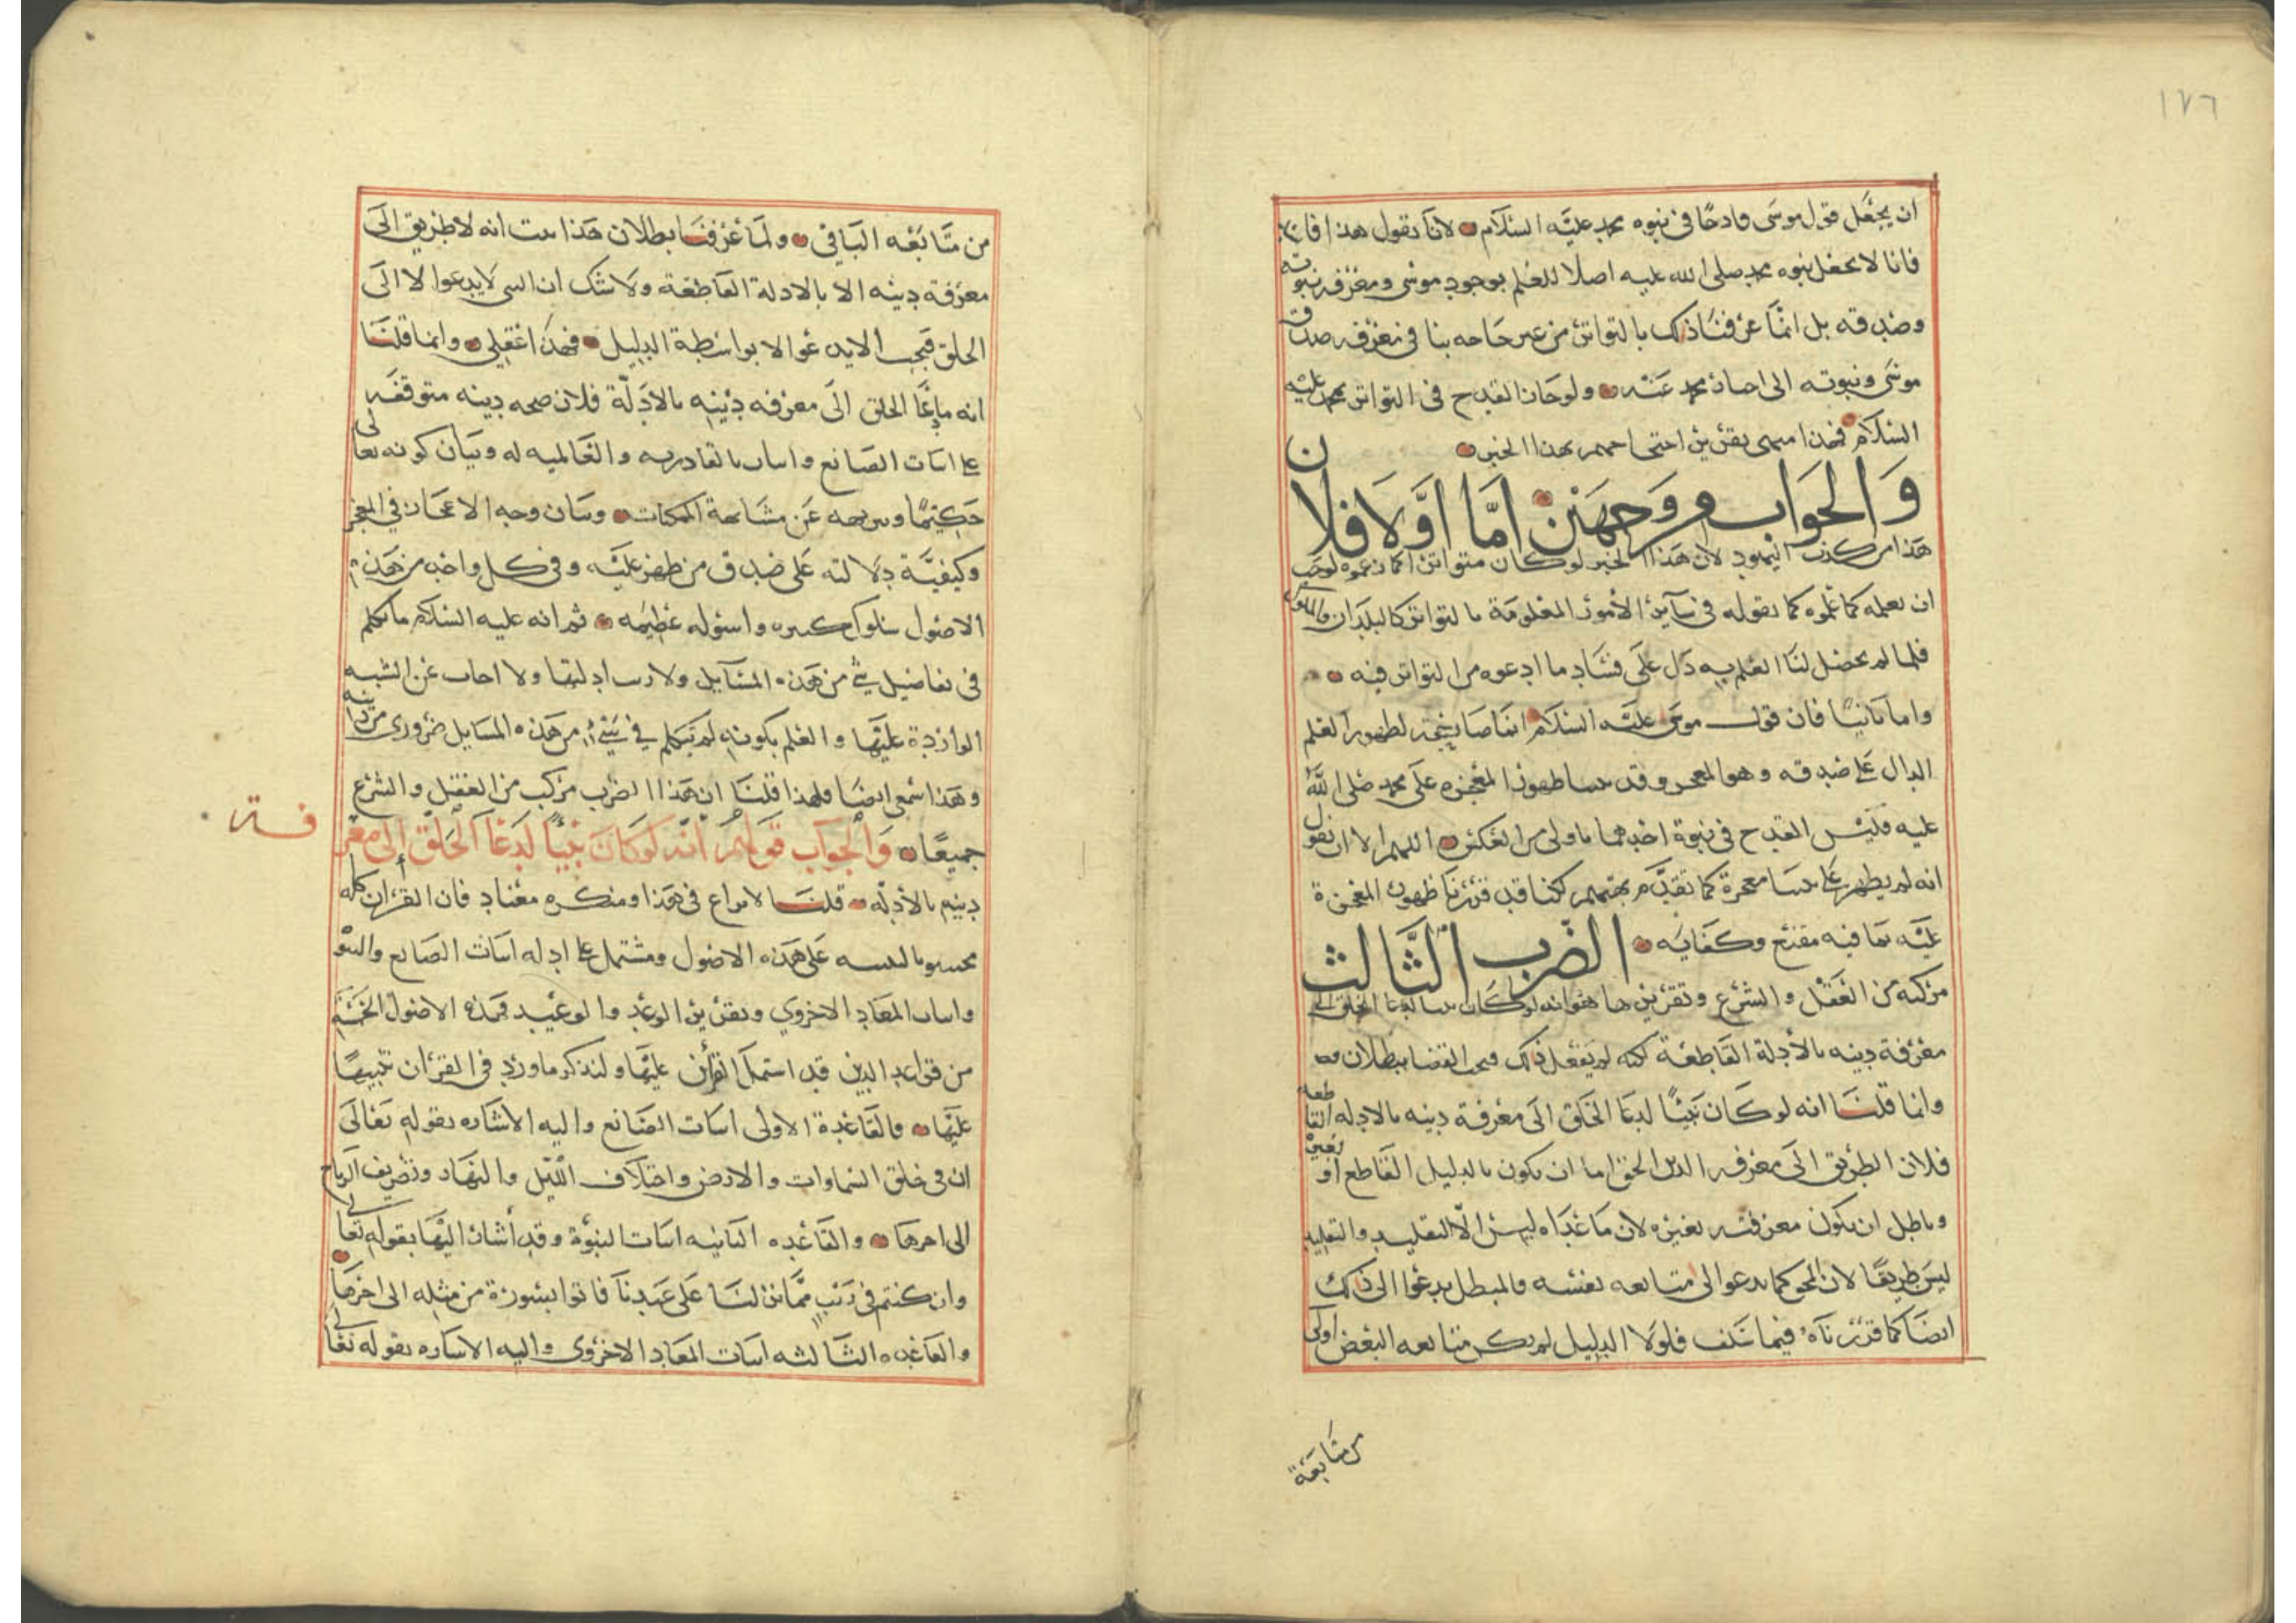 ١٧٦
ان يجعل قول موسى قادحًا في نبوه محمد عليه السلام لانا نقول هذا فاسد
فانا لا نجعل نبوه محمد صلى الله عليه اصلا للعلم بوجود موسى ومعرفه نبوته
وصدقه بل انما عرفنا ذلك بالتواتر من غير حاحه بنا في معرفه صدق
موسى ونبوته الى اخبار محمد عنه ولو حاز القدح في التواتر محمد عليه
السلام فهذا منتهى تقرير احتحاحهم بهذا الخبر
والجواب من وجهين اما اولا فلان
هذا من كذب اليهود لان هذا الخبر لو كان متواترا كما زعموه لوجب
ان نعلمه كما علموه كما نقوله في سآئر الأمور المعلومة بالتواتر كالبلدان والملوك
فلما لم يحصل لنا العلم به دل على فساد ما ادعوه من التواتر فيه
واما ثانيًا فان قول موسى عليه السلام انما صار حجة لظهور العلم
الدال على صدقه وهو المعجز وقد بينا ظهور المعجزه على محمد صلى الله
عليه فليس القدح في نبوة احدهما باولى من العكس اللهم الا ان نقول
انه لم يظهر على نبينا معجزة كما تقدم بهتهم لكنا قد قررنا ظهور المعجزة
عليه بما فيه مقنع وكفايه الضرب الثالث
مركبه من العقل والشرع وتقريرها هو انه لو كان نبيا لدعا الخلق الى
معرفة دينه بالأدلة القاطعة لكنه لم يفعل ذلك فيجب القضا ببطلان
وانما قلنا انه لو كان نبيًا لدعا الخلق الى معرفة دينه بالادله القاطعة
فلان الطريق الى معرفه الدين الحق اما ان يكون بالدليل القاطع او بغيره
وباطل ان يكون معرفته بغيره لان ما عداه ليس الا التقليد والتقليد
ليس طريقًا لان المحق كما يدعوا الى متابعه نفسه فالمبطل يدعوا الى ذلك
ايضا كما قررناه فيما سلف فلولا الدليل لم يكن متابعه البعض اولى
من متابعة
من متابعه الباقي ولما عرفنا بطلان هذا ثبت انه لا طريق الى
معرفة دينه الا بالادلة القاطعة ولا شك ان النبي لا يدعوا الا الى
الحق فيجب الا يدعوا الا بواسطة الدليل فهذا عقلي وانما قلنا
انه ما دعا الخلق الى معرفه دينه بالادلة فلان صحه دينه متوقفه
على اثبات الصانع واثبات القادريه والعالميه له وبيان كونه تعالى
حكيمًا وتنزيهه عن مشابهة الممكنات وبيان وجه الاعجاز في المعجز
وكيفية دلالته على صدق من ظهر عليه وفي كل واحد من هذه
الاصول شكوك كثيره واسوله عظيمه ثم انه عليه السلام ما تكلم
في تفاصيل شي من هذه المسآيل ولا رتب ادلتها ولا اجاب عن الشبه
الواردة عليها والعلم بكونه لم يتكلم في شيء من هذه المسايل ضروري من دينه
وهذا سمعي ايضا فلهذا قلنا ان هذا الضرب مركب من العقل والشرع
جميعًا والجواب قولهم انه لو كان نبيًا لدعا الخلق الى معرفة
دينهم بالأدلة قلنا لا نزاع في هذا ومنكره معاند فان القرآن كله
محشو بالتنبيه على هذه الاصول ومشتمل على ادله اثبات الصانع والنبوة
واثبات المعاد الاخروي وتقرير الوعد والوعيد فهذه الاصول الخمسة
من قواعد الدين قد اشتمل القرأن عليها ولنذكر ما ورد في القرءان تنبيهًا
عليها فالقاعدة الاولى اثبات الصانع واليه الأشاره بقوله تعالى
ان في خلق السماوات والارض واختلاف الليل والنهار وتصريف الرياح
الى اخرها والقاعده الثانيه اثبات النبوة وقد أشار اليها بقوله تعالى
وان كنتم في ريب مما نزلنا على عبدنا فاتوا بسورة من مثله الى اخرها
والقاعده الثالثه اثبات المعاد الاخروي واليه الاشاره بقوله تعالى